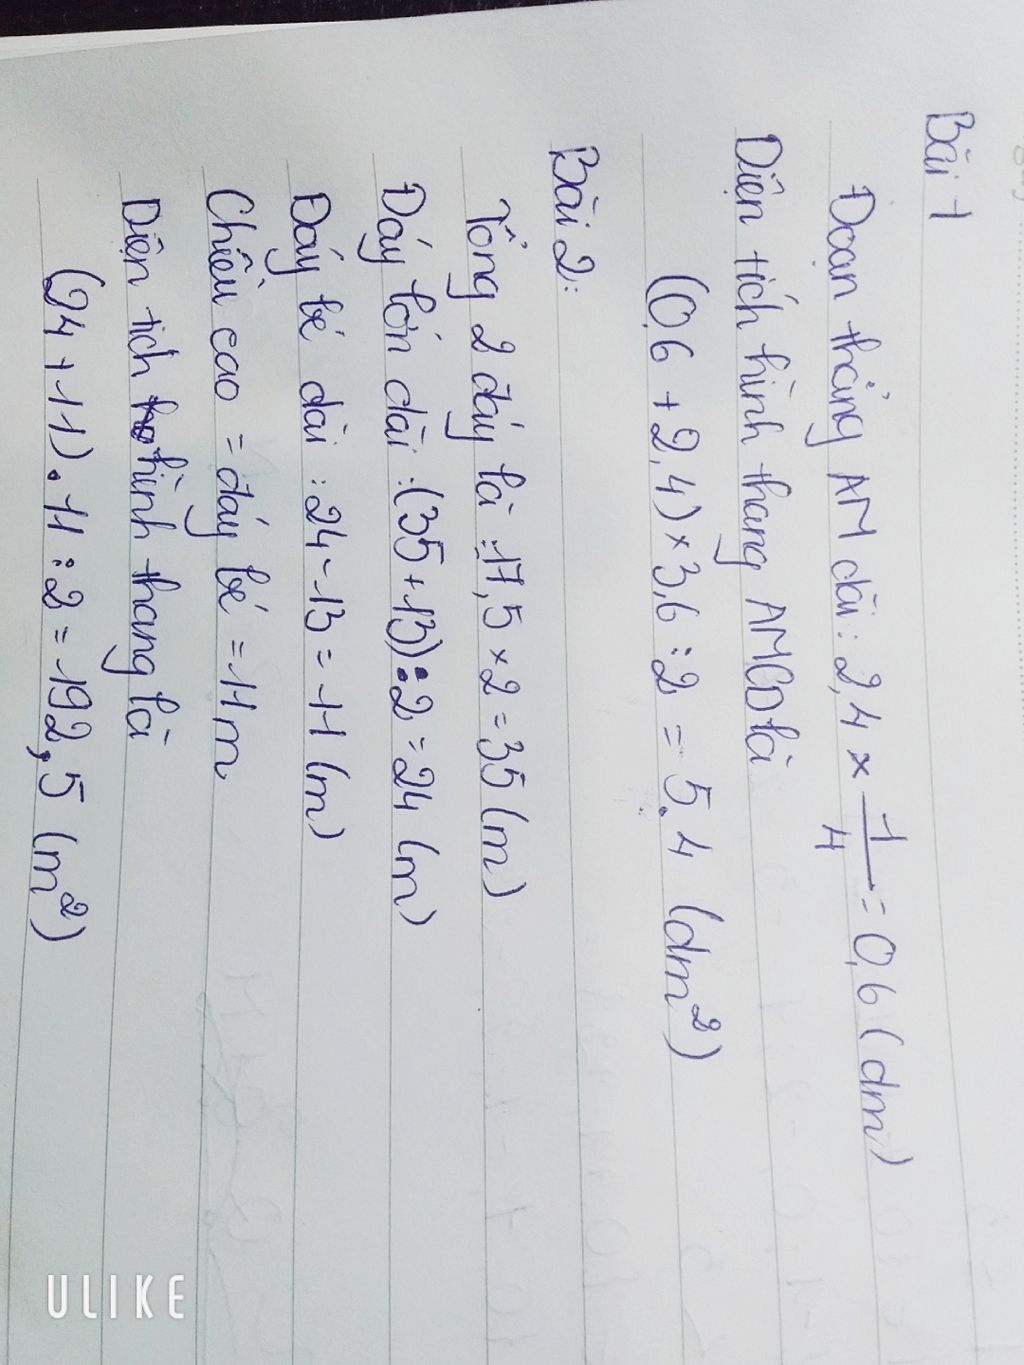 Bài 1
Đoạn thẳng AM dài: 2,4 × 1/4 = 0,6 (dm)
Diện tích hình thang AMCD là
(0,6 + 2,4) × 3,6 : 2 = 5.4 (dm²)
Bài 2:
Tổng 2 đáy là : 17,5 × 2 = 35 (m)
Đáy lớn dài : (35 + 13) : 2 = 24 (m)
Đáy bé dài : 24 - 13 = 11 (m)
Chiều cao = đáy bé = 11 m
Diện tích hình thang là
(24 + 11) . 11 : 2 = 192,5 (m²)
ULIKE